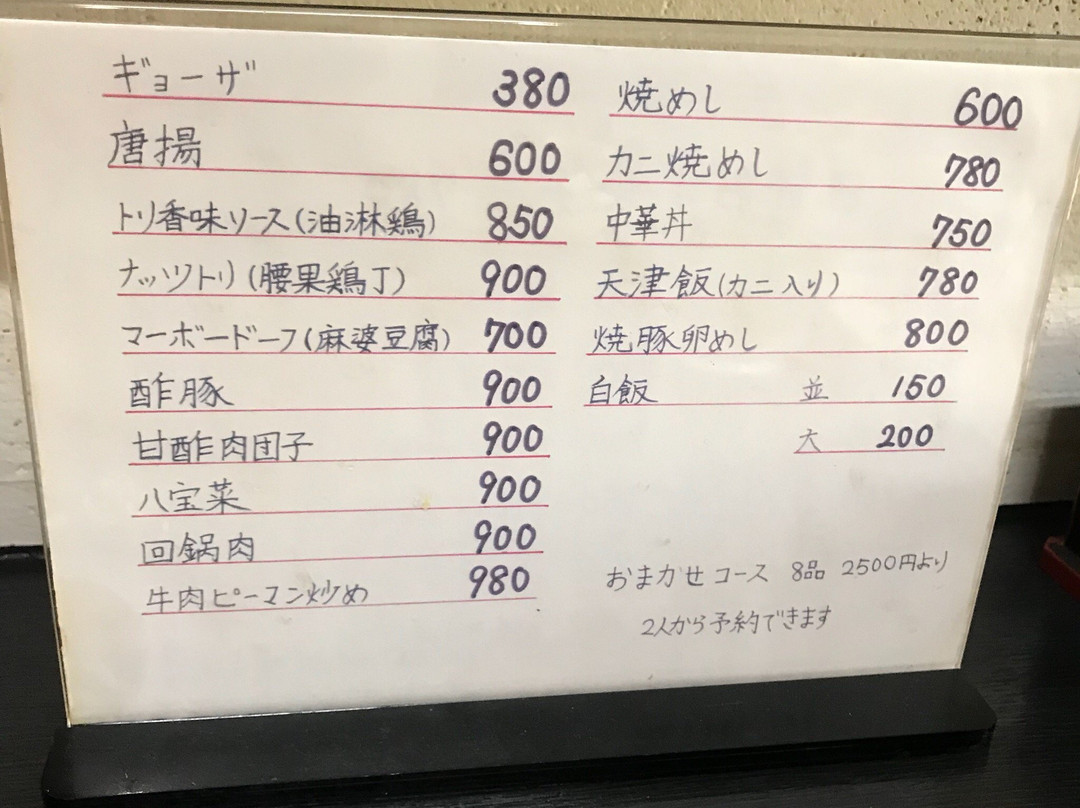 ギョーザ 380
唐揚 600
トリ香味ソース(油淋鶏) 850
ナッツトリ(腰果鶏丁) 900
マーボードーフ(麻婆豆腐) 700
酢豚 900
甘酢肉団子 900
八宝菜 900
回鍋肉 900
牛肉ピーマン炒め 980
焼めし 600
カニ焼めし 780
中華丼 750
天津飯(カニ入り) 780
焼豚卵めし 800
白飯 並 150
大 200
おまかせコース 8品 2500円より
2人から予約できます